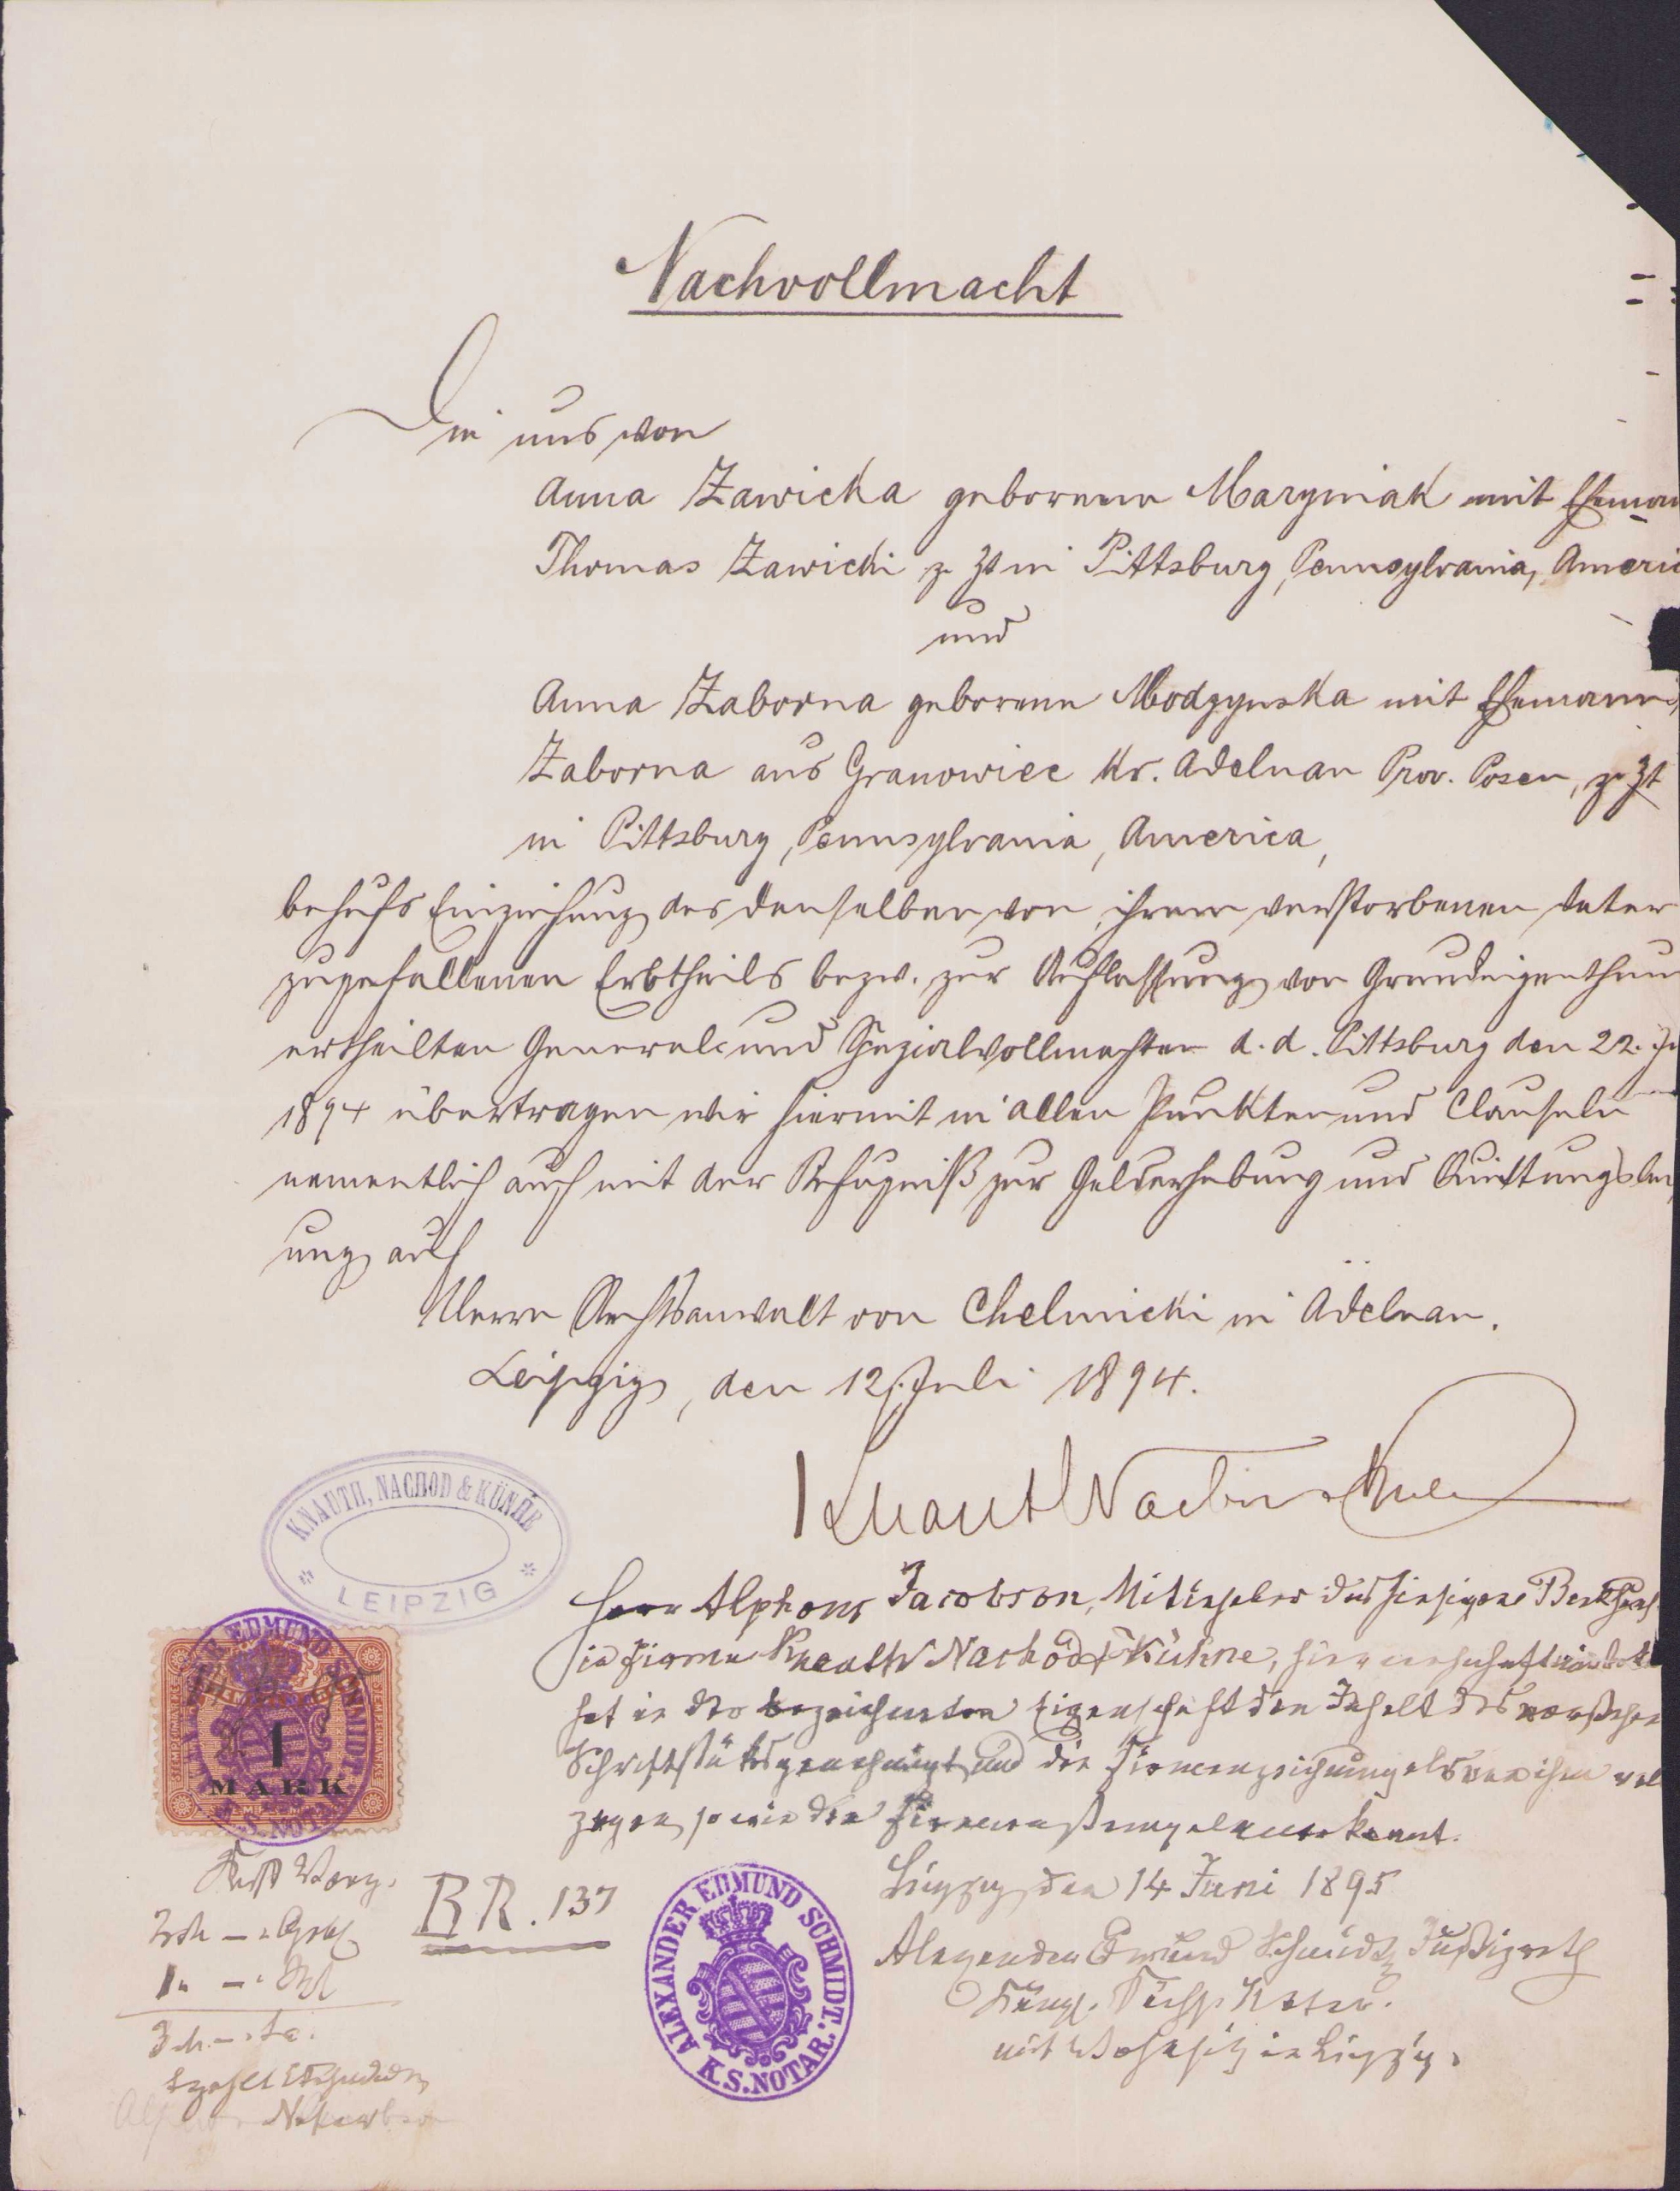 Nachvollmacht
Die uns von
Anna Zawicka geborene Maryniak mit Eheman
Thomas Zawicki z Zt in Pittsburg, Pennsylvania, Americ
und
Anna Zaborna geborene Modzynska mit Ehemann
Zaborna aus Granowiec Kr. Adelnau Prov. Posen, z Zt
in Pittsburg, Pennsylvania, America,
behufs Einziehung des denselben von ihrem verstorbenen Vater
zugefallenen Erbtheils bezw. zur Auflassung von Grundeigenthum
ertheilten General- und Spezialvollmachten d. d. Pittsburg den 22. Ju
1894 übertragen wir hiermit in allen Punkten und Clauseln
namentlich auch mit der Befugniß zur Gelderhebung und Quittungslei
ung auf
Herrn Rechtsanwalt von Chelmicki in Adelnau.
Leipzig, den 12. Juli 1894.
Knauth Nachod & Kühne
KNAUTH, NACHOD & KÜHNE
LEIPZIG
Herr Alphons Jacobson, Mitinhaber des hiesigen Bankhaus
in Firma Knauth Nachod & Kühne,
hat in der bezeichneten Eigenschaft den Inhalt des vorstehen
Schriftstücks genehmigt und die Firmenzeichnung als von ihm voll
zogen, sowie den Firmenstempel anerkannt.
Leipzig den 14 Juni 1895
Alexander Edmund Schmidt, Justizrath
Königl. Sächs. Notar.
mit Wohnsitz in Leipzig.
1
MARK
ALEXANDER EDMUND SCHMIDT.
K.S.NOTAR.
BR. 137
ALEXANDER EDMUND SCHMIDT.
K.S.NOTAR.